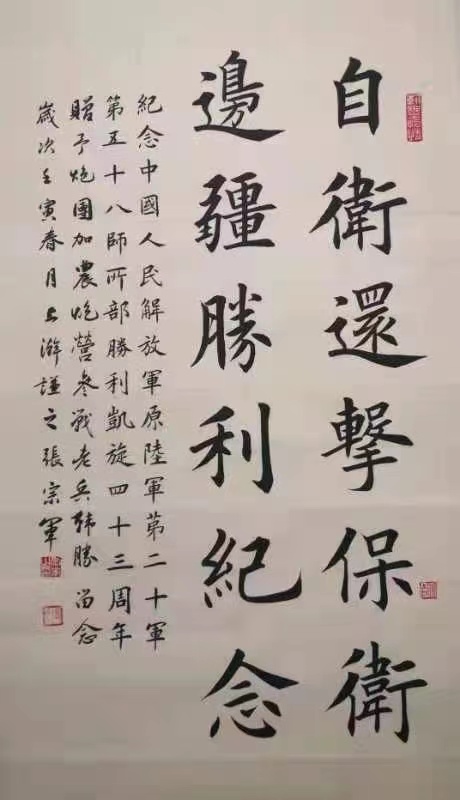 自衛還擊保衛
邊疆勝利紀念
紀念中國人民解放軍原陸軍第二十軍
第五十八師所部勝利凱旋四十三周年
贈予炮團加農炮營參战老兵韩勝 留念
歲次壬寅春月上澣謹之張宗軍